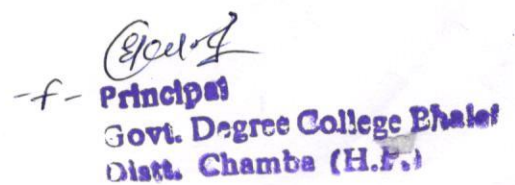 -f- Principal
Govt. Degree College Bhalei
Distt. Chamba (H.P.)